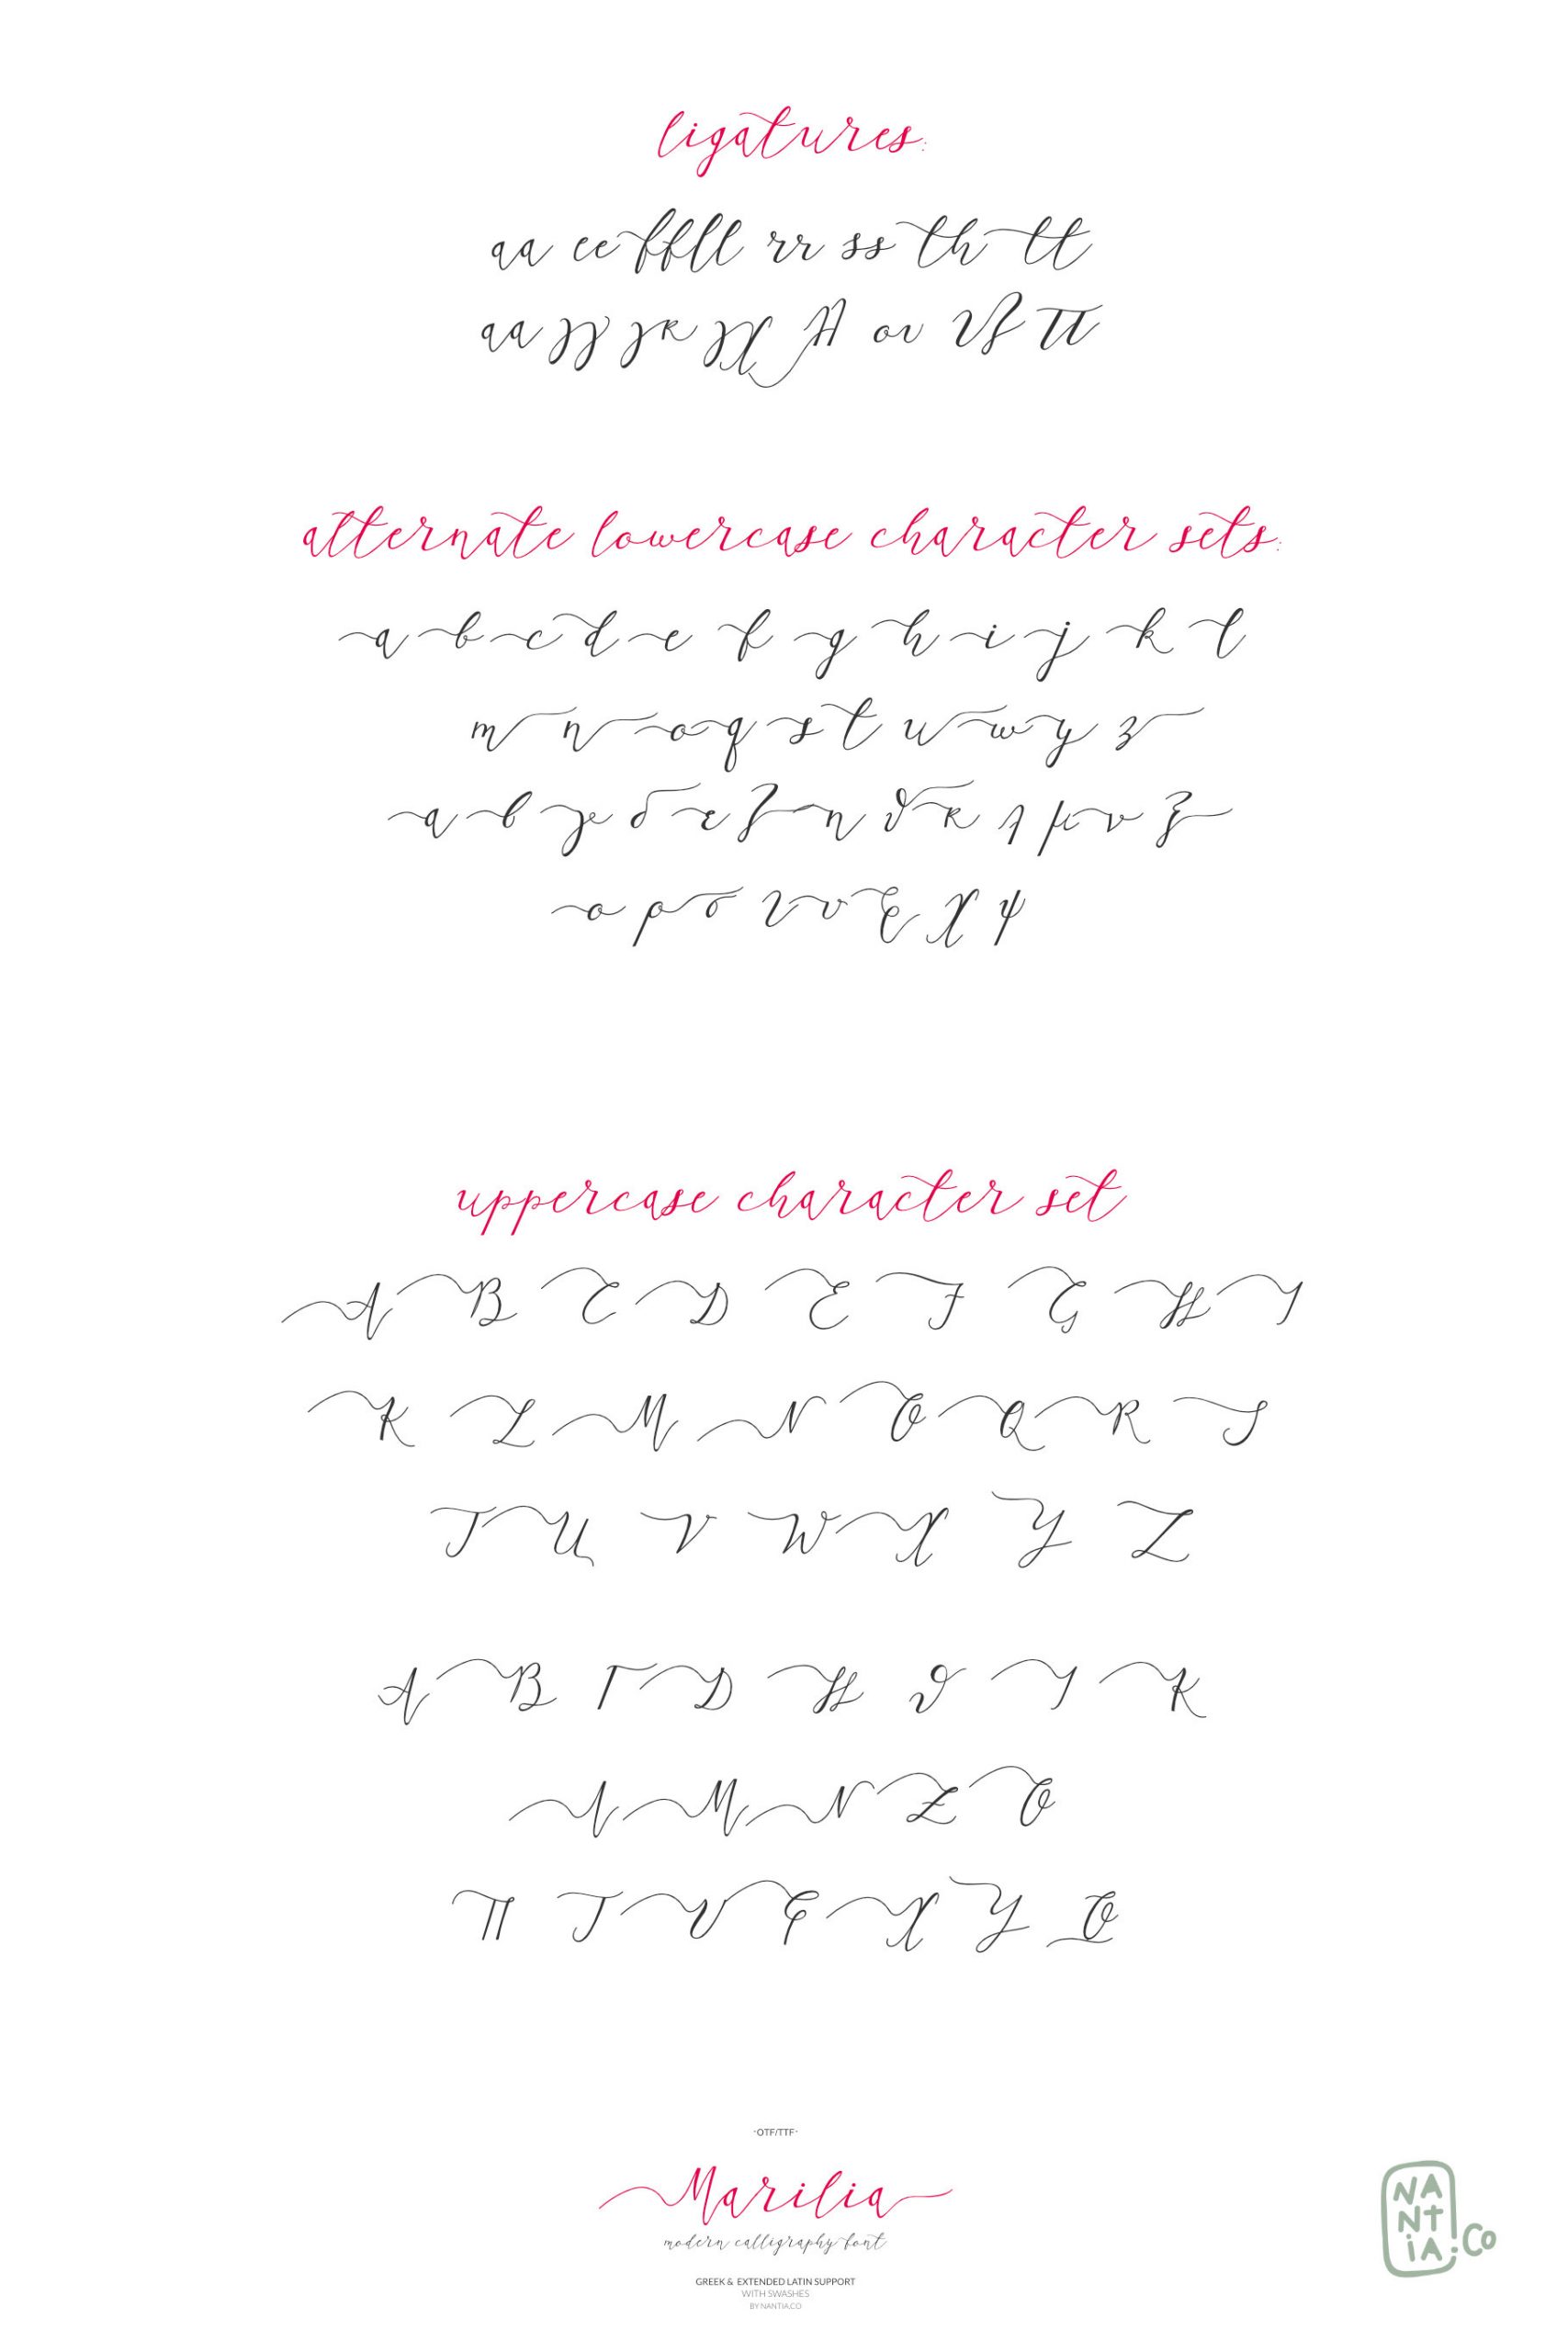 ligatures:
aa ee ff ll rr ss th tt
αα γγ γκ γχ λλ ου τζ ττ
alternate lowercase character sets:
a b c d e f g h i j k l
m n o q s t u w y z
α β γ δ ε ζ η θ κ λ μ ν ξ
ο ρ σ τ υ φ χ ψ
uppercase character set
A B C D E F G H I
K L M N O Q R S
T U V W X Y Z
Α Β Γ Δ Η Θ Ι Κ
Λ Μ Ν Ξ Ο
Π Τ Υ Φ Χ Ψ Ω
-OTF/TTF-
Marilia
modern calligraphy font
GREEK & EXTENDED LATIN SUPPORT
WITH SWASHES
BY NANTIA.CO
NANTiA.Co